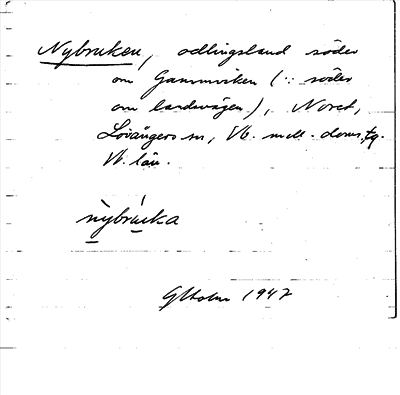 Nybruken, odlingsland söder
om Gammviken (: söder
om landsvägen), Noret,
Lövångers sn, Vb. mell. doms.tg.
Vb. län.
nybruka
GHolm 1947